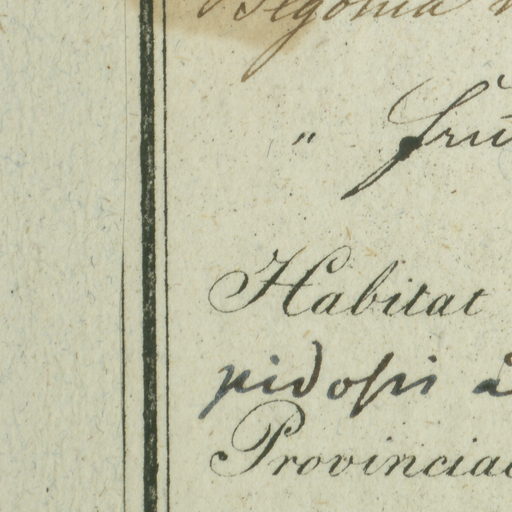 Begonia
„ fru
Habitat
pidosis a
Provinciae